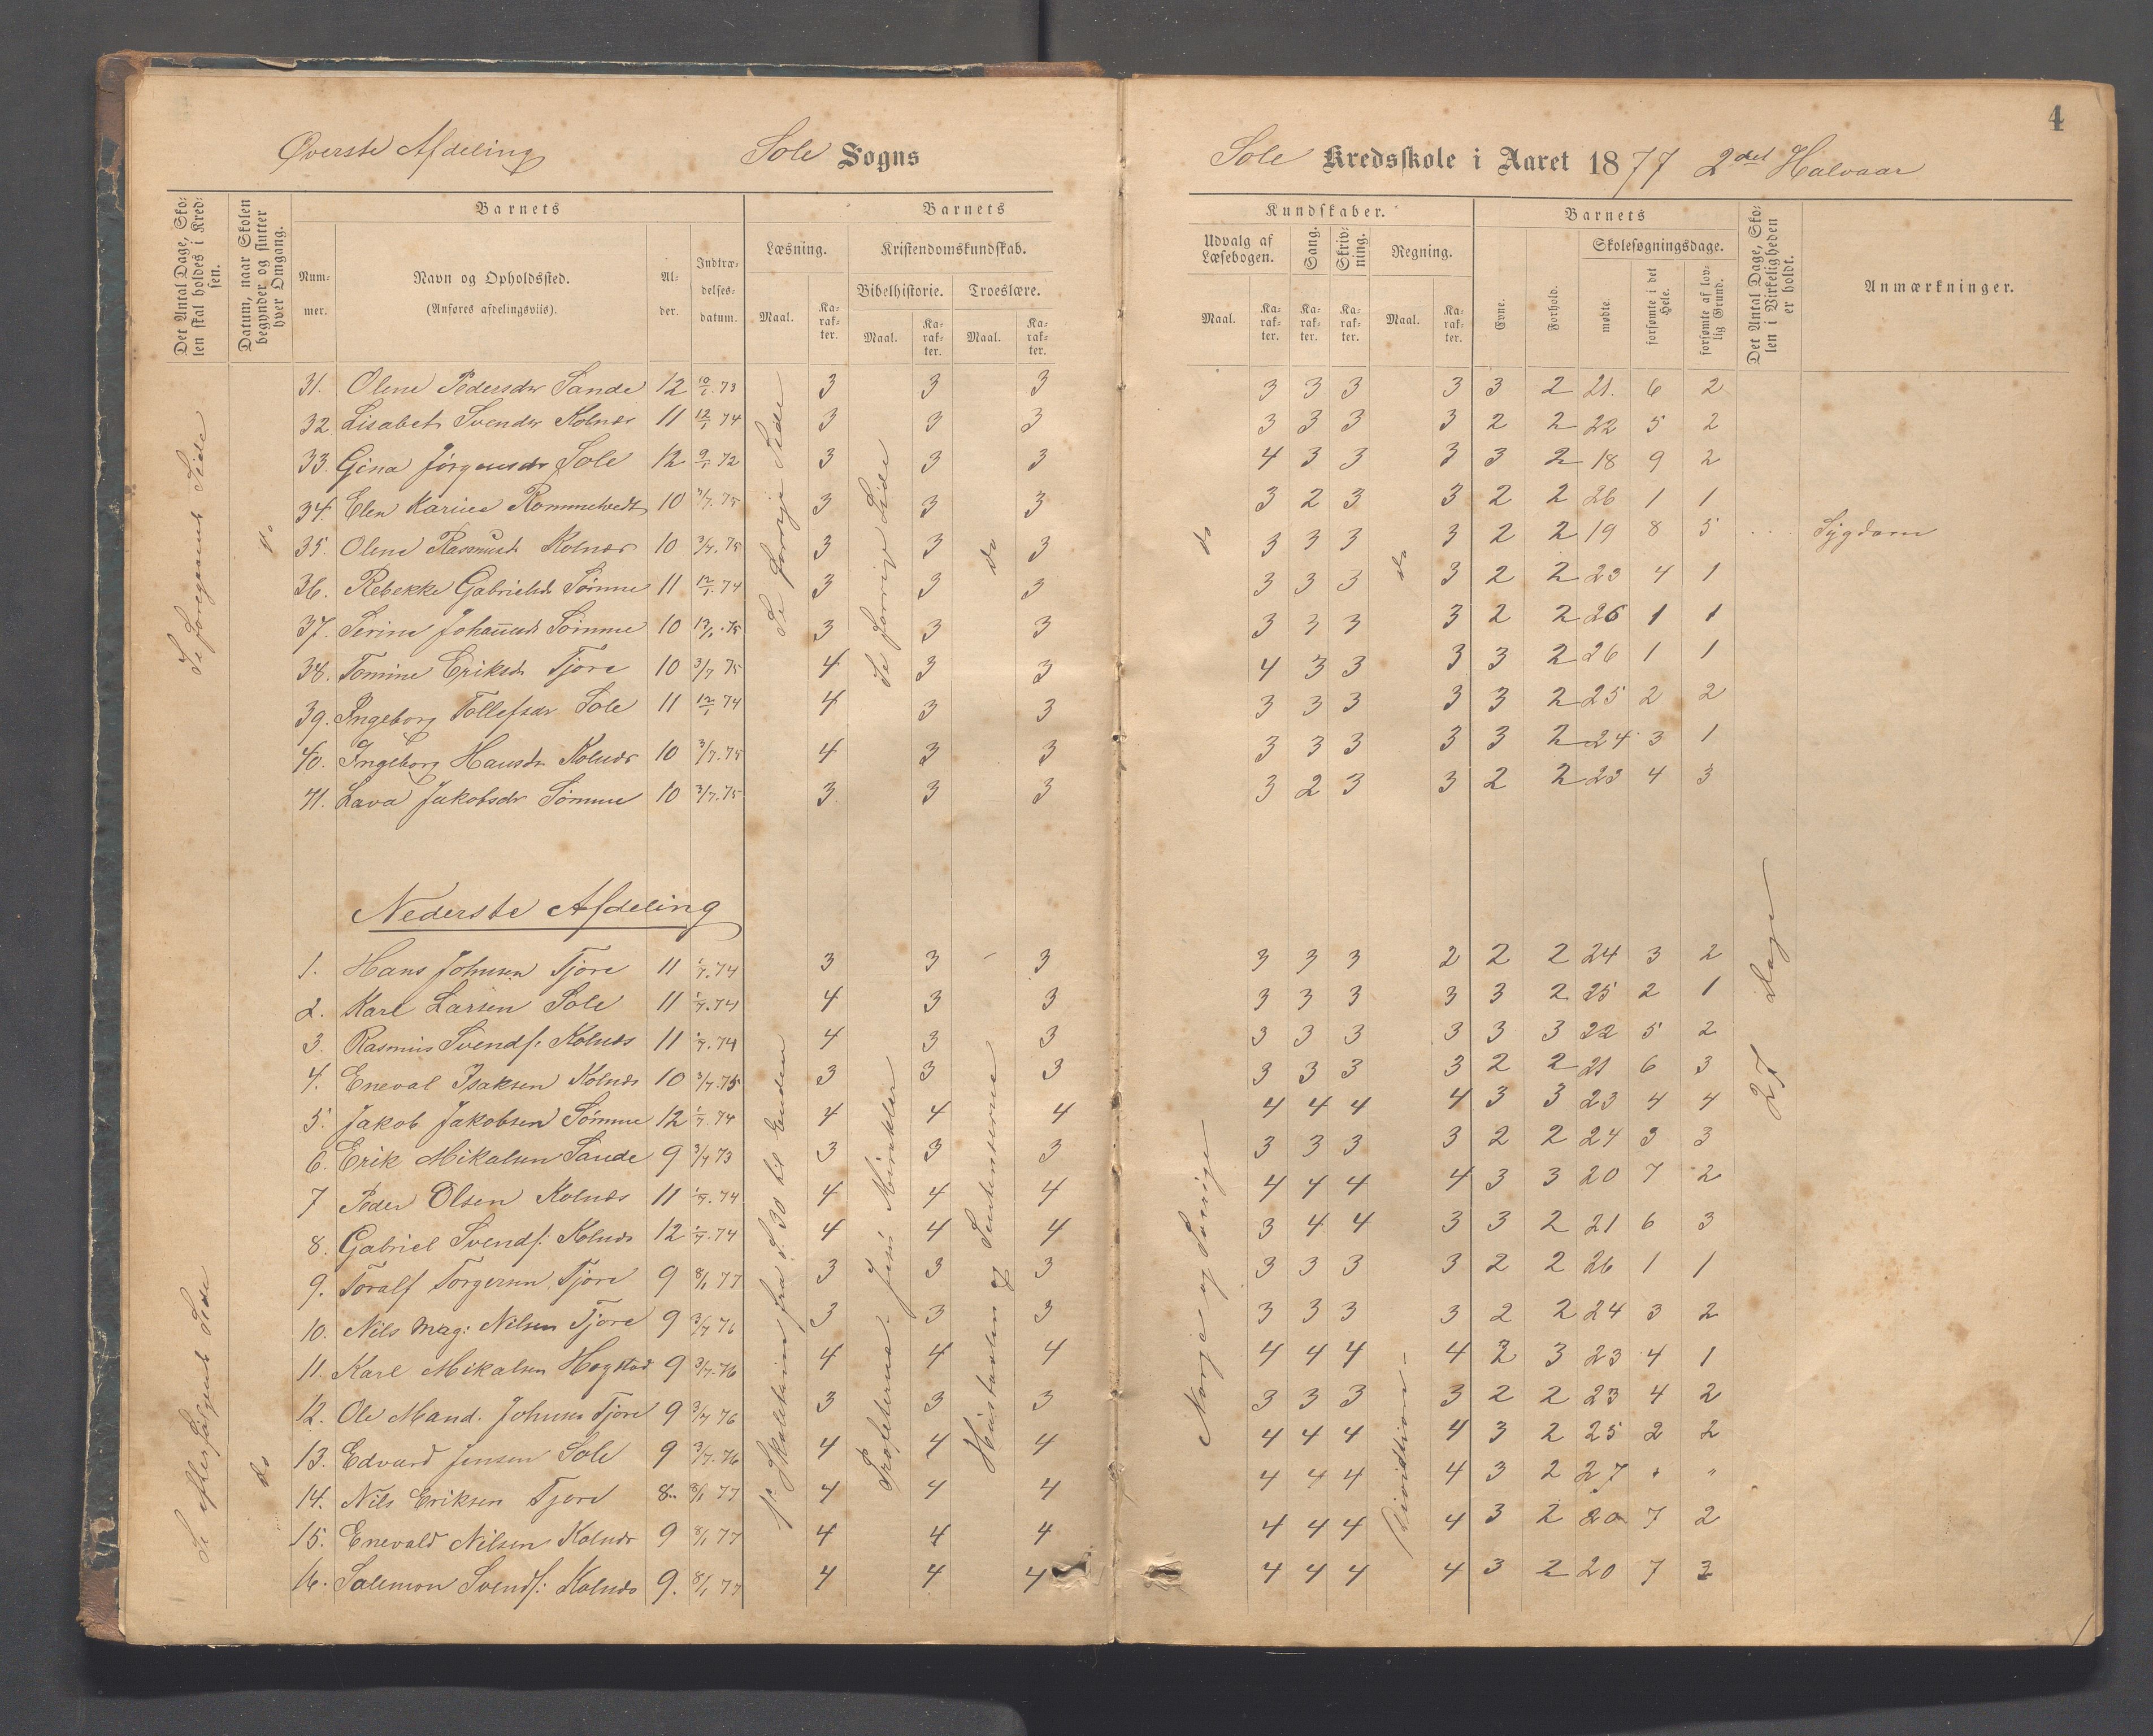 4
Øverste Afdeling Sole Sogns
Sole Kredsskole i Aaret 1877 2det Halvaar
Det Antal Dage, Skolen skal holdes i Kredsen.
Datum, naar Skolen begynder og slutter hver Omgang.
Barnets
Nummer.
Navn og Opholdssted.
(Anføres afdelingsviis).
Alder.
Indtrædelsesdatum.
Barnets Kundskaber.
Læsning.
Maal.
Karakter.
Kristendomskundskab.
Bibelhistorie.
Maal.
Karakter.
Troeslære.
Maal.
Karakter.
Udvalg af Læsebogen.
Maal.
Karakter.
Sang.
Karakter.
Skrivning.
Karakter.
Regning.
Maal.
Karakter.
Barnets
Evne.
Forhold.
Skolesøgningsdage.
mødte.
forsømte i det Hele.
forsømte af lovlig Grund.
Det Antal Dage, Skolen i Virkeligheden er holdt.
Anmærkninger.
Se Foregaaende Side
do
Se forrige Side
Se forrige Side
do
do
do
31. Olene Pedersdr Sande 12 10/1.73 3 3 3 3 3 3 3 3 2 21. 6 2
32 Lisabet Svendsr Kolnes 11 12/1 74 3 3 3 3 3 3 3 2 2 22 5 2
33. Gina Jørgensdr Sole 12 9/1 72 3 3 3 4 3 3 3 3 2 18 9 2
34. Elen Karine Rommetvedt 10 3/7. 75 3 3 3 3 2 3 3 2 2 26 1 1
35. Olene Rasmusd. Kolnes 10 3/7. 75 3 3 3 3 3 3 3 2 2 19 8 5 Sygdom
36. Rebekke Gabrielsd. Sømme 11 12/1. 74 3 3 3 3 3 3 3 2 2 23 4 1
37. Serine Johannesd. Sømme 10 12/1. 75 3 3 3 3 3 3 3 2 2 26 1 1
38. Tomine Eriksd. Tjore 10 3/7 75 4 3 3 4 3 3 3 3 2 26 1 1
39. Ingeborg Tollefsdr Sole 11 12/1 74 4 3 3 3 3 3 3 3 2 25 2 2
40. Ingeborg Hansdr Kolnes 10 3/7. 75 4 3 3 3 3 3 3 3 2 24 3 1
41. Lava Jakobsdr Sømme 10 3/7. 75 3 3 3 3 2 3 3 2 2 23 4 3
Nederste Afdeling
1. Hans Johnsen Tjore 11 1/7. 74 3 3 3 3 3 3 2 2 2 24 3 2
2. Karl Larsen Sole 11 1/7. 74 4 3 3 3 3 3 3 3 2 25 2 1
3. Rasmus Svends. Kolnes 11 1/7. 74 4 3 3 3 3 3 3 3 3 22 5 2
4. Eneval Isaksen Kolnes 10 3/7. 75 3 3 3 3 3 3 3 2 2 21 6 3
5. Jakob Jakobsen Sømme 12 1/7. 74 4 4 4 4 4 4 4 3 3 23 4 4
6. Erik Mikalsen Sande 9 3/7 73 3 3 3 3 3 3 3 2 2 24 3 3
7 Peder Olsen Kolnes 11 1/7. 74 4 4 4 4 4 4 4 3 3 20 7 2
8. Gabriel Svends: Kolnes 12 1/7. 74 4 4 4 3 4 4 3 3 2 21 6 3
9. Toralf Torgersen Tjore 9 8/1 77 3 3 3 3 3 3 3 2 2 26 1 1
10. Nils Mag: Nilsen Tjore 9 3/7 76 3 3 3 3 3 3 3 2 2 24 3 2
11. Karl Mikalsen Hogstad 9 3/7. 76 4 4 4 4 4 4 4 2 3 23 4 1
12. Ole Mand. Johnsen Tjore 9 3/7 76 3 3 3 3 3 3 3 2 2 23 4 2
13. Edvard Jensen Sole 9 3/7. 76 4 4 4 4 4 4 4 3 2 25 2 2
14. Nils Eriksen Tjore 8.. 8/1 77 4 4 4 4 4 4 4 3 2 27 " "
15. Enevald Nilsen Kolnes 9 8/1 77 4 4 4 4 4 4 4 3 2 20 7 2
16. Salemon Svends: Kolnes 9. 8/1 77 4 4 4 4 4 4 4 3 2 20 7 3
Se efterfølgende Side
do
fra S. 30 til Enden
Profeterne - Jesu Mirakler
Hustavlen og Sentenserne
Norge og Sverige
Division -
27 Dage